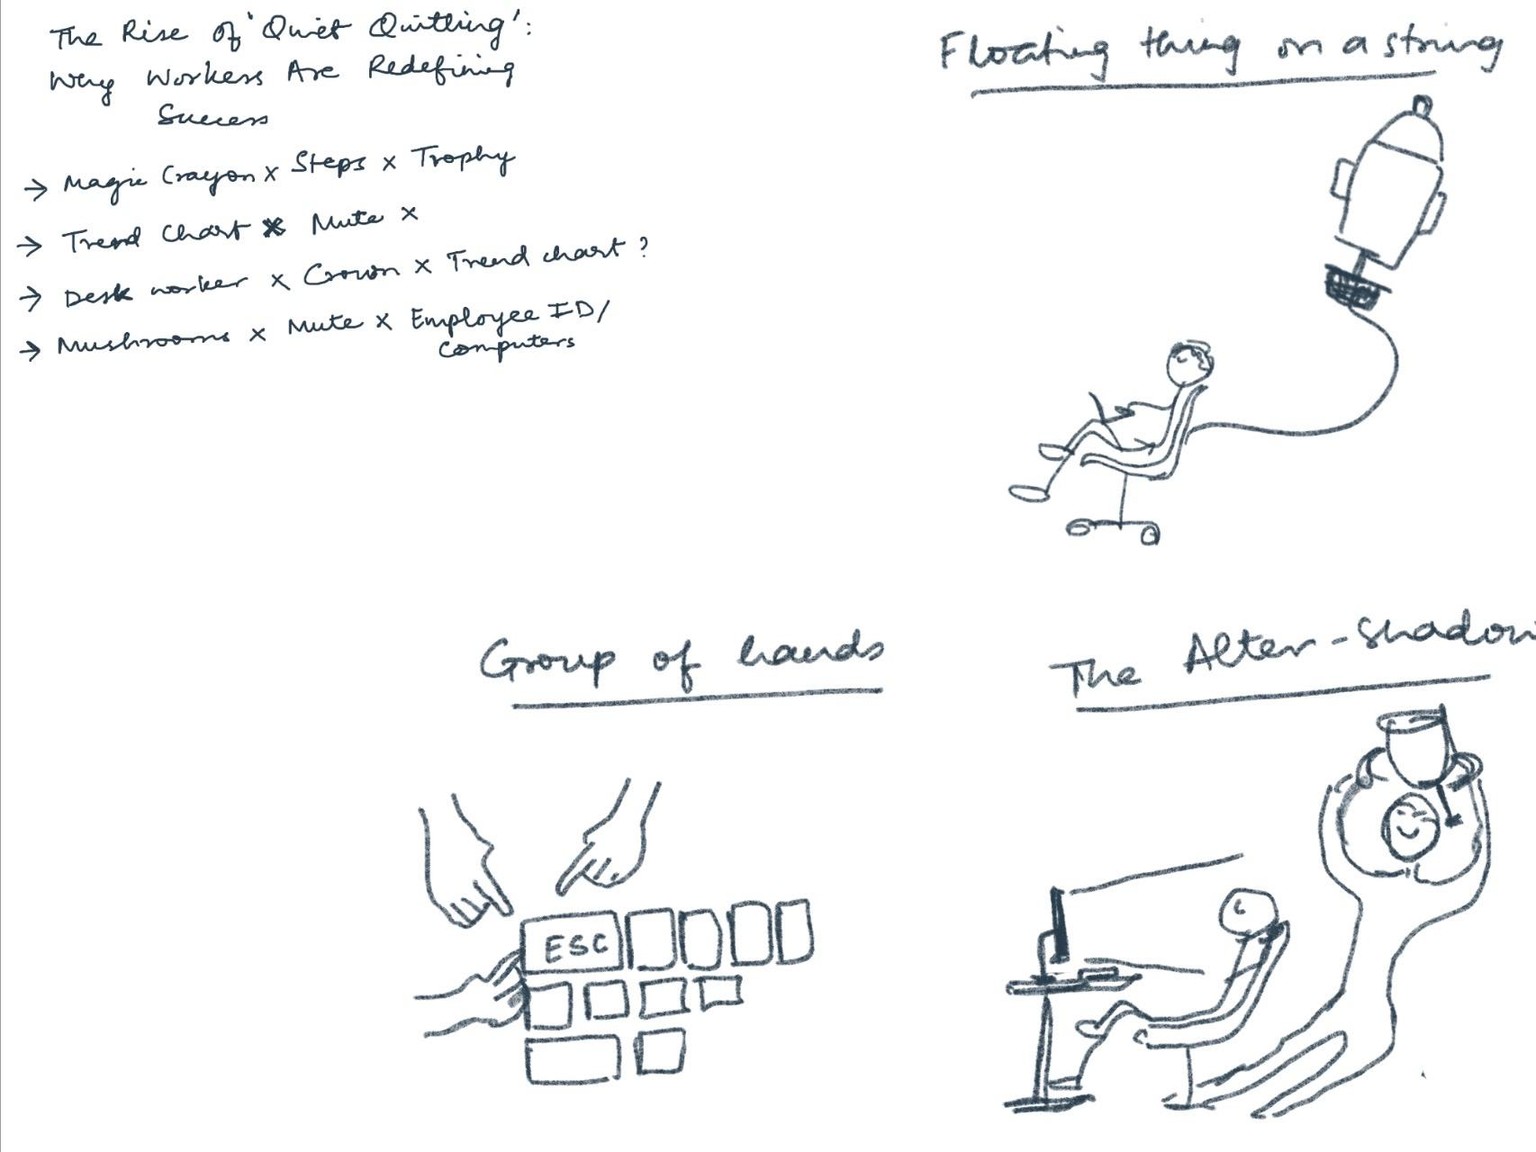 The Rise of 'Quiet Quitting':
Why Workers Are Redefining
Success
→ Magic Crayon x Steps x Trophy
→ Trend Chart x Mute x
→ Desk worker x Crown x Trend chart ?
→ Mushrooms x Mute x Employee ID/
Computers
Floating thing on a string
Group of hands
ESC
The Alter-Shadow